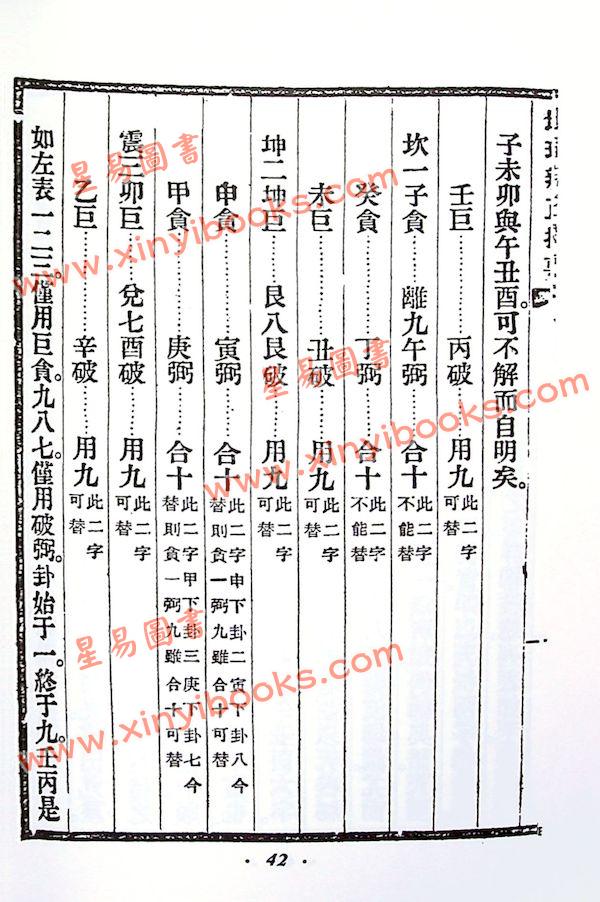 子未卯與午丑酉。可不解而自明矣。
壬巨……丙破……用九此二字可替
坎一子貪……離九午弼……合十此二字不能替
癸貪……丁弼……合十此二字不能替
未巨……丑破……用九此二字可替
坤二坤巨……艮八艮破……用九此二字可替
申貪……寅弼……合十此二字申下卦二寅下卦八今替則貪一弼九雖合十可替
甲貪……庚弼……合十此二字甲下卦三庚下卦七今替則貪一弼九雖合十可替
震三卯巨……兌七酉破……用九此二字可替
乙巨……辛破……用九此二字可替
如左表一二三。僅用巨貪。九八七。僅用破弼。卦始于一。終于九。壬丙是
· 42 ·
星易圖書
www.xinyibooks.com
星易圖書
www.xinyibooks.com
星易圖書
www.xinyibooks.com